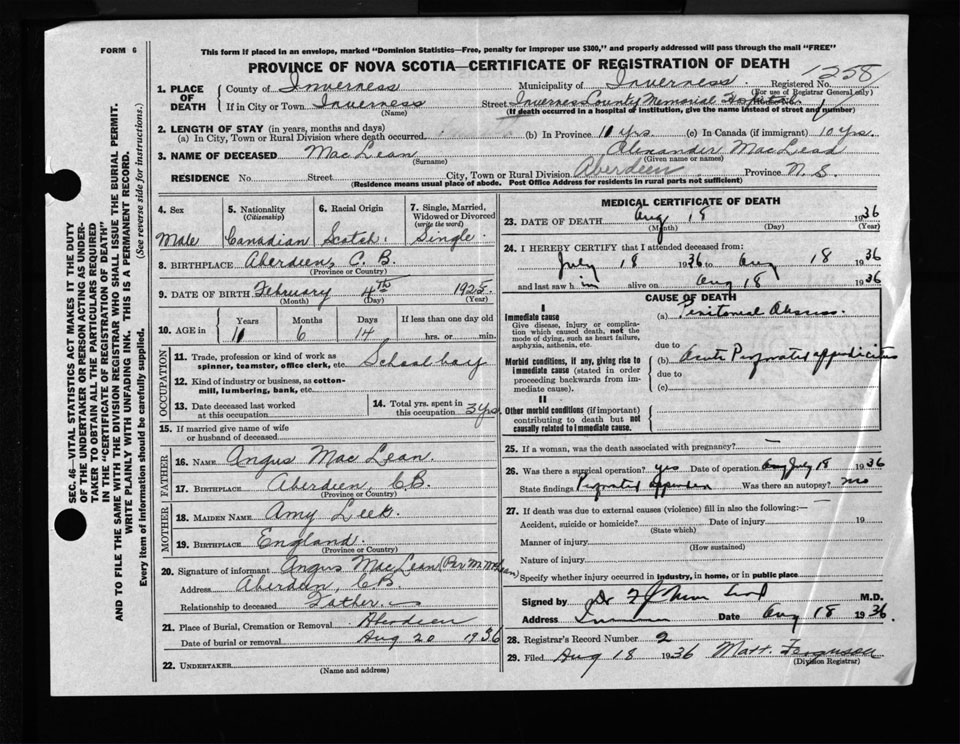 FORM 6
This form if placed in an envelope, marked "Dominion Statistics—Free, penalty for improper use $300," and properly addressed will pass through the mail "FREE"
PROVINCE OF NOVA SCOTIA—CERTIFICATE OF REGISTRATION OF DEATH
1. PLACE OF DEATH
County of Inverness Municipality of Inverness Registered No. 1258
(For use of Registrar General only)
If in City or Town Inverness Street Inverness County Memorial Hospital
(If death occurred in a hospital or institution, give the name instead of street and number)
2. LENGTH OF STAY (in years, months and days)
(a) In City, Town or Rural Division where death occurred (b) In Province 11 yrs. (c) In Canada (if immigrant) 10 yrs.
3. NAME OF DECEASED MacLean Alexander MacLeod
(Surname) (Given name or names)
RESIDENCE No. Street City, Town or Rural Division Aberdeen Province N. S.
(Residence means usual place of abode. Post Office Address for residents in rural parts not sufficient)
4. Sex Male
5. Nationality (Citizenship) Canadian
6. Racial Origin Scotch
7. Single, Married, Widowed or Divorced (write the word) Single
8. BIRTHPLACE Aberdeen, C. B.
(Province or Country)
9. DATE OF BIRTH February 4th 1925
(Month) (Day) (Year)
10. AGE in Years 11 Months 6 Days 14 If less than one day old hrs. or min.
OCCUPATION
11. Trade, profession or kind of work as spinner, teamster, office clerk, etc. School boy
12. Kind of industry or business, as cotton-mill, lumbering, bank, etc.
13. Date deceased last worked at this occupation
14. Total yrs. spent in this occupation 3 yrs.
15. If married give name of wife or husband of deceased
FATHER
16. NAME Angus MacLean
17. BIRTHPLACE Aberdeen, C.B.
(Province or Country)
MOTHER
18. MAIDEN NAME Amy Leek
19. BIRTHPLACE England
(Province or Country)
20. Signature of informant Angus MacLean (Per
Address Aberdeen, C.B.
Relationship to deceased Father
21. Place of Burial, Cremation or Removal Aberdeen
Date of burial or removal Aug 20 1936
22. UNDERTAKER
(Name and address)
MEDICAL CERTIFICATE OF DEATH
23. DATE OF DEATH Aug 18 1936
(Month) (Day) (Year)
24. I HEREBY CERTIFY that I attended deceased from:
July 18 1936 to Aug 18 1936
and last saw him alive on Aug 18 1936
CAUSE OF DEATH
I
Immediate cause
Give disease, injury or complication which caused death, not the mode of dying, such as heart failure, asphyxia, asthenia, etc.
(a)
due to
Morbid conditions, if any, giving rise to immediate cause (stated in order proceeding backwards from immediate cause).
(b) Acute appendicitis
due to
(c)
II
Other morbid conditions (if important) contributing to death but not causally related to immediate cause.
25. If a woman, was the death associated with pregnancy? —
26. Was there a surgical operation? yes Date of operation July 18 1936
State findings Was there an autopsy? no
27. If death was due to external causes (violence) fill in also the following:—
Accident, suicide or homicide? Date of injury 19
(State which)
Manner of injury
(How sustained)
Nature of injury
Specify whether injury occurred in industry, in home, or in public place
Signed by Dr M.D.
Address Date Aug 18 1936
28. Registrar's Record Number 2
29. Filed Aug 18 1936 Matt. Ferguson
(Division Registrar)
SEC. 46—VITAL STATISTICS ACT MAKES IT THE DUTY OF THE UNDERTAKER OR PERSON ACTING AS UNDERTAKER TO OBTAIN ALL THE PARTICULARS REQUIRED IN THE "CERTIFICATE OF REGISTRATION OF DEATH"
AND TO FILE THE SAME WITH THE DIVISION REGISTRAR WHO SHALL ISSUE THE BURIAL PERMIT.
WRITE PLAINLY WITH UNFADING INK. THIS IS A PERMANENT RECORD.
Every item of information should be carefully supplied. (See reverse side for instructions.)